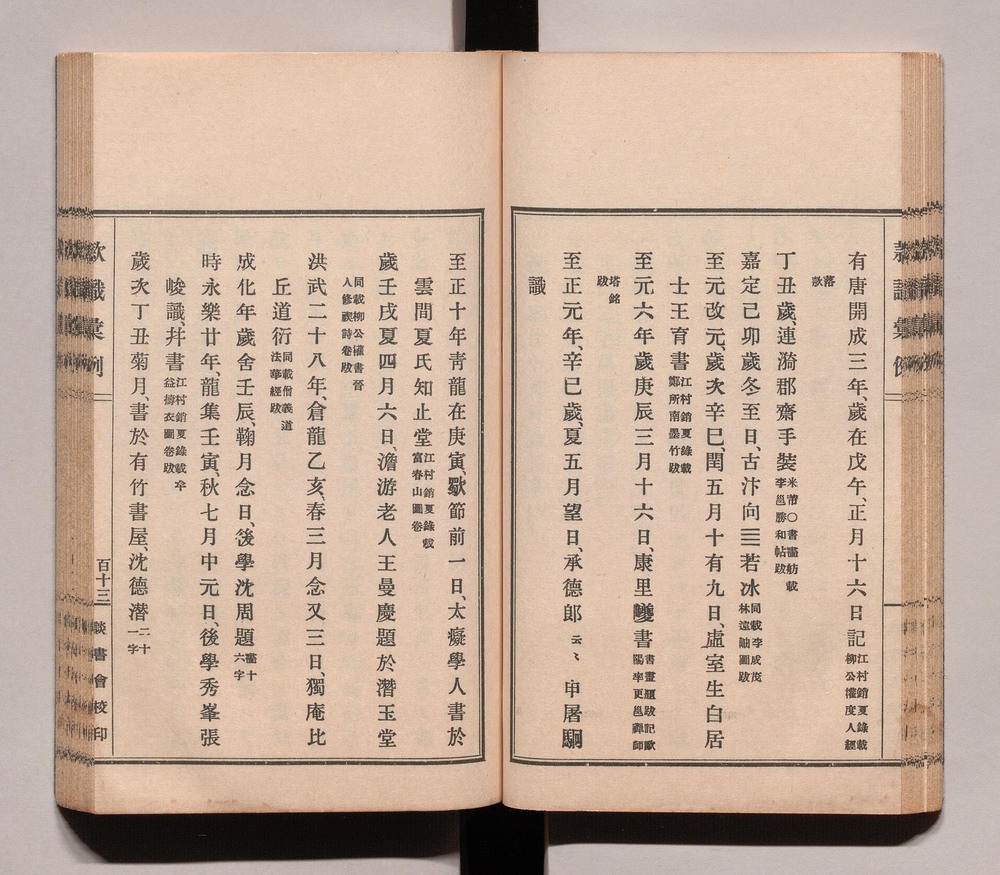 有唐開成三年、歲在戊午、正月十六日記江村銷夏錄載柳公權度人經
落款
丁丑歲、連漪郡齋手裝米芾〇書畫舫載李邕勝和帖跋
嘉定己卯歲冬至日、古汴向三若冰同載李成茂林遠岫圖跋
至元改元、歲次辛巳、閏五月十有九日、虛室生白居
士王育書江村銷夏錄載鄭所南墨竹跋
至元六年歲庚辰三月十六日、康里巙書書畫題跋記歐陽率更邕禪師
塔銘跋
至正元年、辛巳歲、夏五月望日、承德郎云々申屠駉
識
至正十年靑龍在庚寅、歜節前一日、太癡學人書於
雲間夏氏知止堂江村銷夏錄載富春山圖卷
歲壬戌夏四月六日、澹游老人王曼慶題於潛玉堂
同載柳公權書晉人修禊詩卷跋
洪武二十八年、倉龍乙亥、春三月念又三日、獨庵比
丘道衍同載僧義道法華經跋
成化年歲舍壬辰、鞠月念日、後學沈周題畫十六字
時永樂廿年、龍集壬寅、秋七月中元日、後學秀峯張
峻識、幷書江村銷夏錄載李益擣衣圖卷跋
歲次丁丑菊月、書於有竹書屋、沈德潛二十一字
款識彙例
百十三
談書會校印